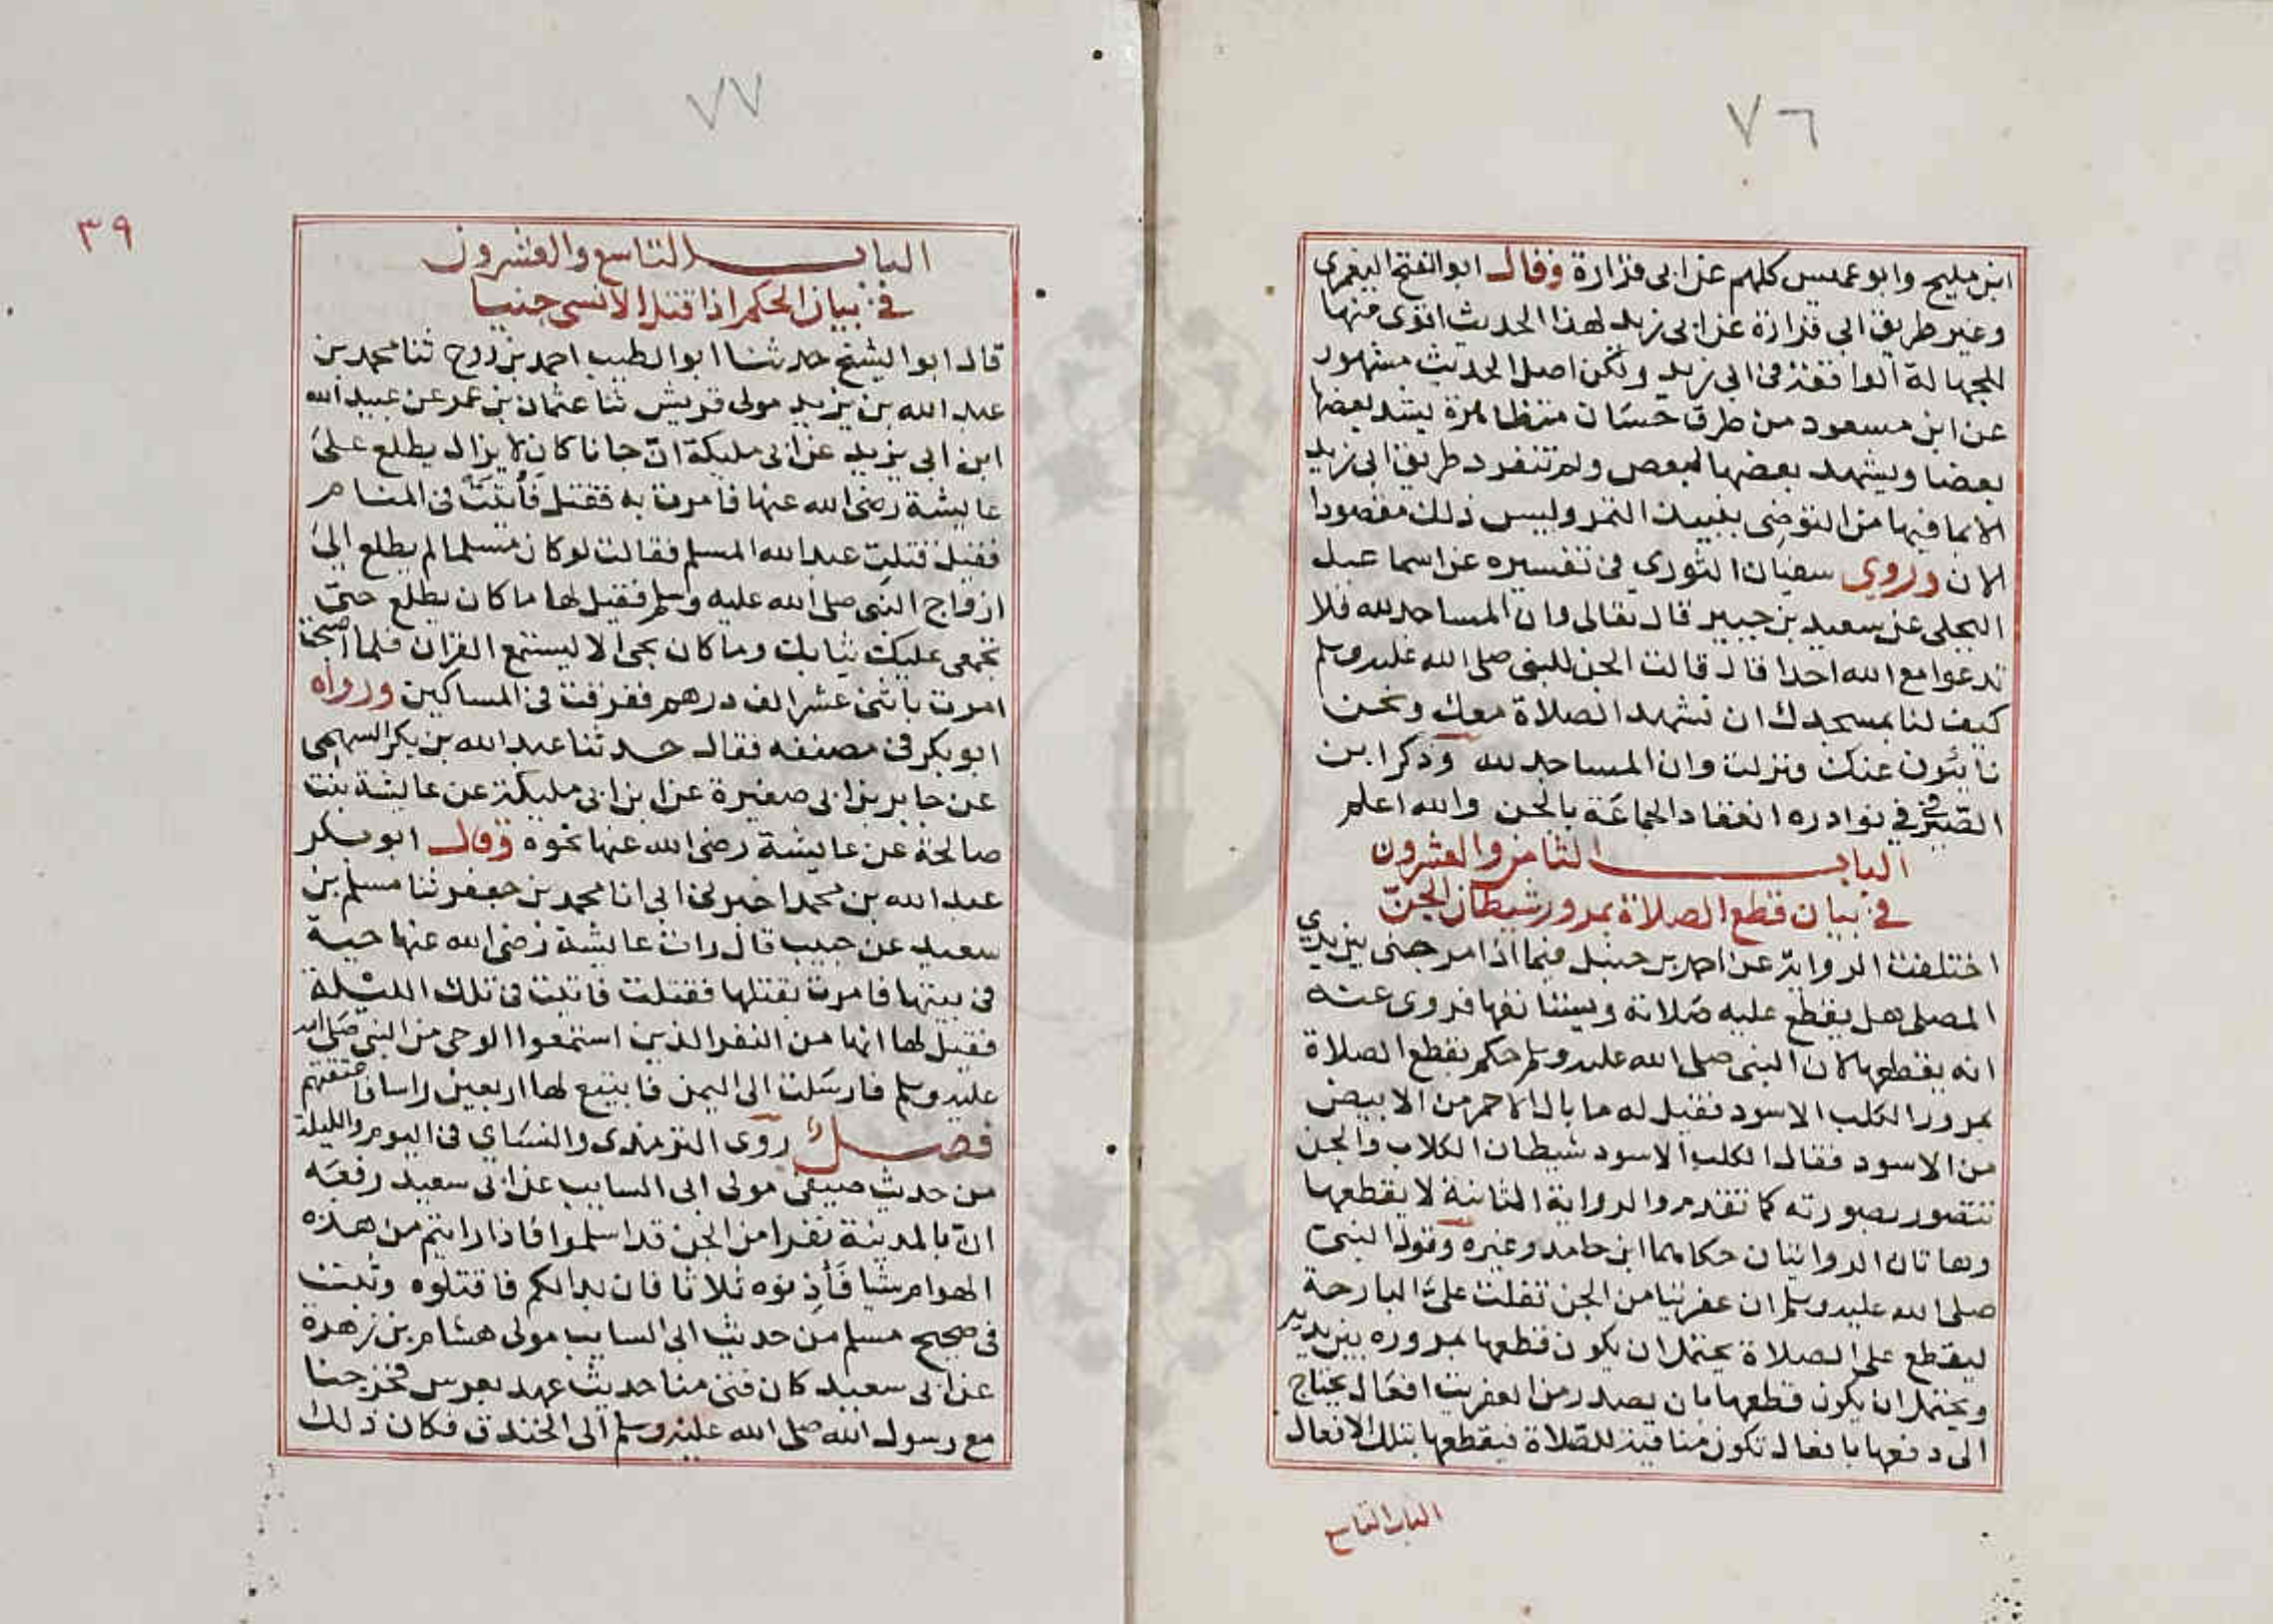 ٧٦
ابن مليح وابو عميس كلهم عن ابى فزارة وقال ابو الفتح اليعمرى
وغير طريق ابى فزارة عن ابى زيد لهذا الحديث اقوى منها
للجهالة الواقعة فى ابى زيد ولكن اصل الحديث مشهور
عن ابن مسعود من طرق حسان متظاهرة يشد بعضها
بعضا ويشهد بعضها لبعض ولم تنفرد طريق ابى زيد
الا بما فيها من التوضى بنبيذ التمر وليس ذلك مقصودا
الان وروى سفيان الثورى فى تفسيره عن اسماعيل
البجلى عن سعيد بن جبير قال تعالى وان المساجد لله فلا
تدعوا مع الله احدا قال قالت الجن للنبى صلى الله عليه وسلم
كيف لنا بمسجدك ان نشهد الصلاة معك ونحن
نائون عنك فنزلت وان المساجد لله وذكر ابن
الصيرفى فى نوادره انعقاد الجماعة بالجن والله اعلم
الباب الثامن والعشرون
فى بيان قطع الصلاة بمرور شيطان الجن
اختلفت الرواية عن احمد بن حنبل فيما اذا مر جنى بين يدى
المصلى هل يقطع عليه صلاته ويستانفها فروى عنه
انه يقطعها لان النبى صلى الله عليه وسلم حكم بقطع الصلاة
بمرور الكلب الاسود فقيل له ما بال الاحمر من الابيض
من الاسود فقال الكلب الاسود شيطان الكلاب والجن
تتصور بصورته كما تقدم والرواية الثانية لا يقطعها
وهاتان الروايتان حكاهما ابن حامد وغيره وقول النبى
صلى الله عليه وسلم ان عفريتا من الجن تفلت على البارحة
ليقطع على الصلاة يحتمل ان يكون قطعها بمروره بين يديه
ويحتمل ان يكون قطعها بان يصدر من العفريت افعال يحتاج
الى دفعها بافعال تكون منافية للصلاة فيقطعها بتلك الافعال
الباب التاسع
٧٧
٣٩
الباب التاسع والعشرون
فى بيان الحكم اذا قتل الانسى جنيا
قال ابو الشيخ حدثنا ابو الطيب احمد بن روح ثنا محمد بن
عبد الله بن يزيد مولى قريش ثنا عثمان بن عمر عن عبيد الله
ابن ابى يزيد عن ابى مليكة ان جانا كان لا يزال يطلع على
عايشة رضى الله عنها فامرت به فقتل فأتيت فى المنام
فقيل قتلت عبد الله المسلم فقالت لو كان مسلما لم يطلع الى
ازواج النبى صلى الله عليه وسلم فقيل لها ما كان يطلع حتى
تجمعى عليك ثيابك وما كان يجى الا ليستمع القران فلما اصبحت
امرت باثنى عشر الف درهم ففرقت فى المساكين ورواه
ابو بكر فى مصنفه فقال حدثنا عبد الله بن بكر السهمى
عن حابر بن ابى صغيرة عن ابن ابى مليكة عن عايشة بنت
صالحة عن عايشة رضى الله عنها نحوه وقال ابو بكر
عبد الله بن محمد اخبرنى ابى انا محمد بن جعفر ثنا مسلم بن
سعيد عن حبيب قال رات عايشة رضى الله عنها حية
فى بيتها فامرت بقتلها فقتلت فاتيت فى تلك الليلة
فقيل لها انها من النفر الذين استمعوا الوحى من النبى صلى الله
عليه وسلم فارسلت الى اليمن فابتيع لها اربعين راسا فاعتقتهم
فصل روى الترمذى والنساى فى اليوم والليلة
من حديث صيفى مولى ابى السايب عن ابى سعيد رفعه
ان بالمدينة نفرا من الجن قد اسلموا فاذا رايتم من هذه
الهوام شيا فأذنوه ثلاثا فان بدا لكم فاقتلوه وثبت
فى صحيح مسلم من حديث ابى السايب مولى هشام بن زهرة
عن ابى سعيد كان فتى منا حديث عهد بعرس فخرجنا
مع رسول الله صلى الله عليه وسلم الى الخندق فكان ذلك